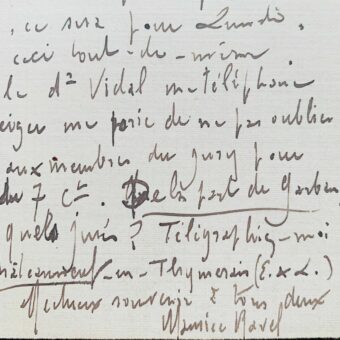 , ce sera pour Lundi.
ceci tout-de-même
le dr Vidal me téléphone
exiger me prie de ne pas oublier
aux membres du jury pour
du 7 ct. De la part de
quels jurés ? Télégraphiez-moi
châteauneuf-en-Thymerais (E. & L.)
Affectueux souvenir à tous deux
Maurice Ravel